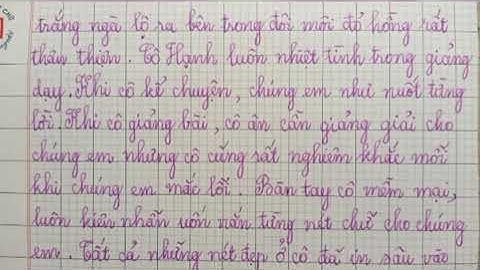 trắng ngà lộ ra bên trong đôi môi đỏ hồng rất
thân thiện. Cô Hạnh luôn nhiệt tình trong giảng
dạy. Khi cô kể chuyện, chúng em như nuốt từng
lời. Khi cô giảng bài, cô ân cần giảng giải cho
chúng em nhưng cô cũng rất nghiêm khắc mỗi
khi chúng em mắc lỗi. Bàn tay cô mềm mại,
luôn kiên nhẫn uốn nắn từng nét chữ cho chúng
em. Tất cả những nét đẹp ở cô đã in sâu vào